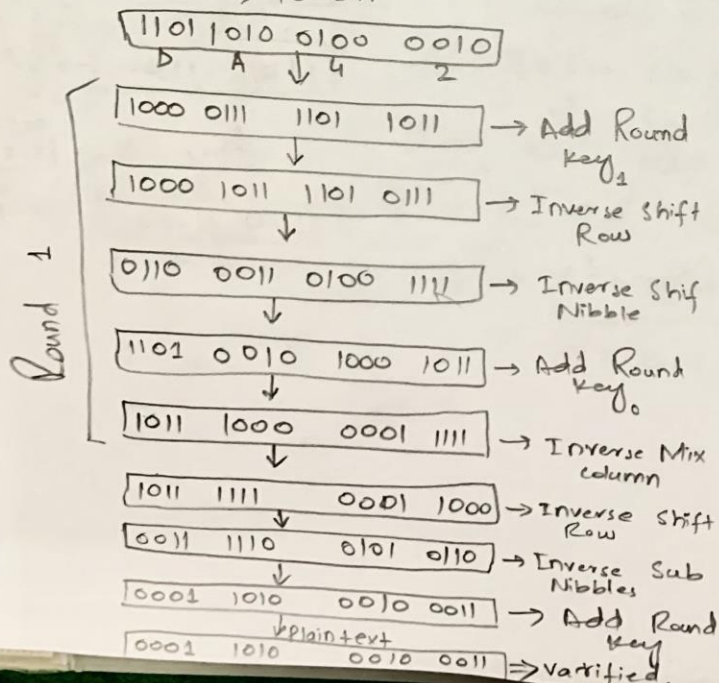 1101 1010 0100 0010
D A 4 2
1000 0111 1101 1011 → Add Round
Key1
1000 1011 1101 0111 → Inverse Shift
Row
0110 0011 0100 1111 → Inverse Shif
Nibble
1101 0010 1000 1011 → Add Round
Key0
1011 1000 0001 1111 → Inverse Mix
column
1011 1111 0001 1000 → Inverse Shift
Row
0011 1110 0101 0110 → Inverse Sub
Nibbles
0001 1010 0010 0011 → Add Round
Key
Plaintext
0001 1010 0010 0011 ⇒ Varified
Round 1